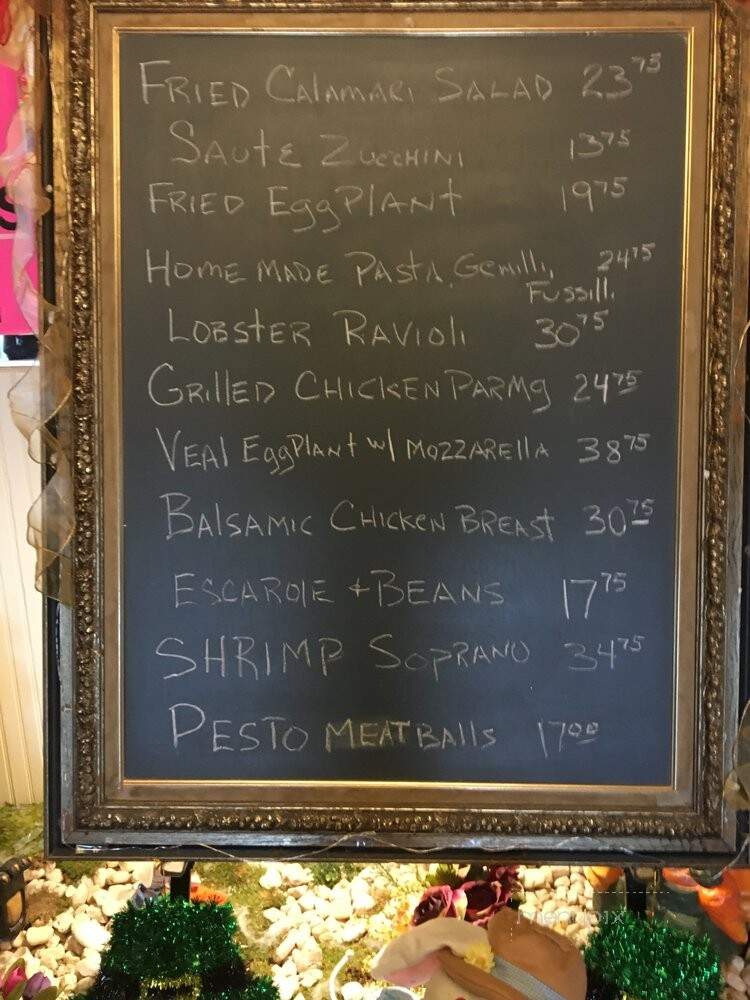 FRIED CALAMARI SALAD 23 75
SAUTE ZUCCHINI 13 75
FRIED EggPlANt 19 75
HOME MADE PASTA. Gemilli, 24 75
Fussilli
LOBSTER RAVIOli 30 75
GRIllED CHICKEN PARMg 24 75
VEAl EggPlANt w/ MOZZARELLA 38 75
BAlSAMIC CHICKEN BREAST 30 75
ESCAROlE + BEANS 17 75
SHRIMP SOPRANO 34 75
PESTO MEATBAlls 17 00
MENUPIX